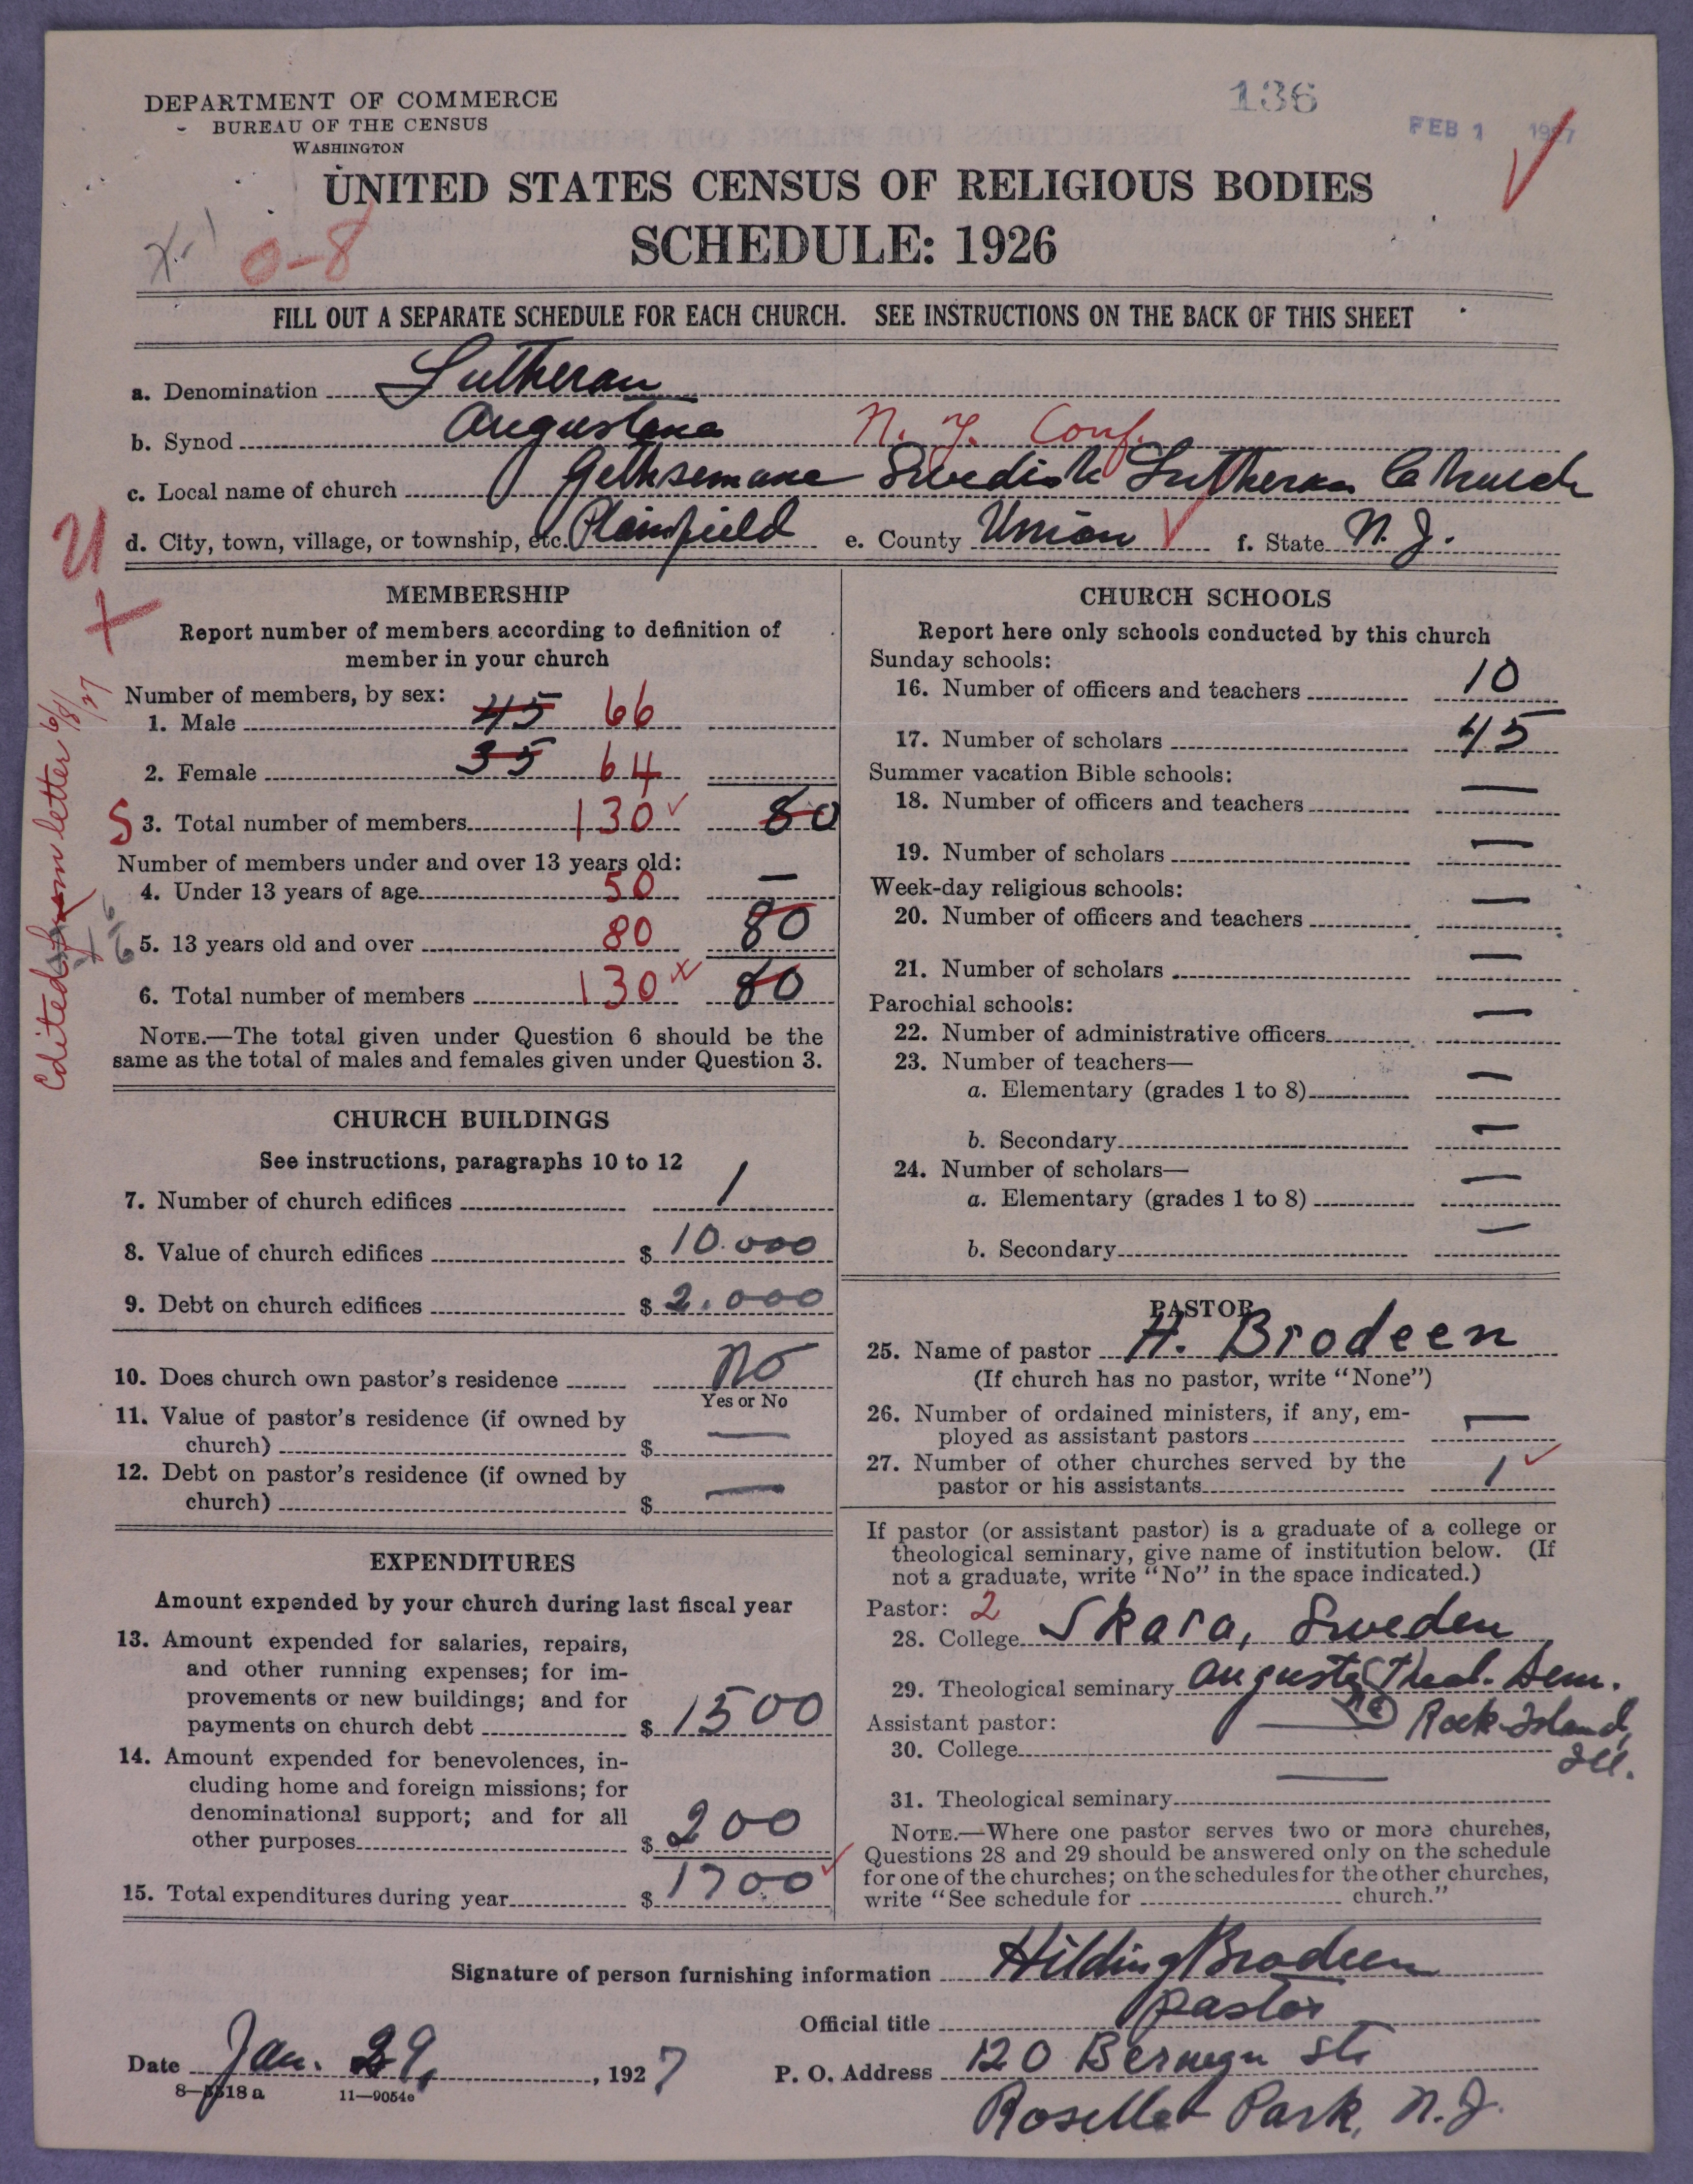 DEPARTMENT OF COMMERCE
BUREAU OF THE CENSUS
WASHINGTON
136
FEB 1 1927
UNITED STATES CENSUS OF RELIGIOUS BODIES
SCHEDULE: 1926
0-8
FILL OUT A SEPARATE SCHEDULE FOR EACH CHURCH. SEE INSTRUCTIONS ON THE BACK OF THIS SHEET
a. Denomination Lutheran
b. Synod Augustana N. Y. Conf.
c. Local name of church Gethsemane Swedish Lutheran Church
d. City, town, village, or township, etc. Plainfield e. County Union f. State N. J.
U
X
Edited from letter 6/8/27
MEMBERSHIP
Report number of members according to definition of
member in your church
Number of members, by sex:
1. Male 45 66
2. Female 35 64
S 3. Total number of members 130 80
Number of members under and over 13 years old:
4. Under 13 years of age 50 —
5. 13 years old and over 80 80
6. Total number of members 130 80
NOTE.—The total given under Question 6 should be the
same as the total of males and females given under Question 3.
CHURCH BUILDINGS
See instructions, paragraphs 10 to 12
7. Number of church edifices 1
8. Value of church edifices $ 10.000
9. Debt on church edifices $ 2.000
10. Does church own pastor's residence No
Yes or No
11. Value of pastor's residence (if owned by
church) $ —
12. Debt on pastor's residence (if owned by
church) $ —
EXPENDITURES
Amount expended by your church during last fiscal year
13. Amount expended for salaries, repairs,
and other running expenses; for im-
provements or new buildings; and for
payments on church debt $ 1500
14. Amount expended for benevolences, in-
cluding home and foreign missions; for
denominational support; and for all
other purposes $ 200
15. Total expenditures during year $ 1700
CHURCH SCHOOLS
Report here only schools conducted by this church
Sunday schools:
16. Number of officers and teachers 10
17. Number of scholars 45
Summer vacation Bible schools:
18. Number of officers and teachers —
19. Number of scholars —
Week-day religious schools:
20. Number of officers and teachers —
21. Number of scholars —
Parochial schools:
22. Number of administrative officers —
23. Number of teachers—
a. Elementary (grades 1 to 8) —
b. Secondary —
24. Number of scholars—
a. Elementary (grades 1 to 8) —
b. Secondary —
PASTOR
25. Name of pastor H. Brodeen
(If church has no pastor, write "None")
26. Number of ordained ministers, if any, em-
ployed as assistant pastors —
27. Number of other churches served by the
pastor or his assistants 1
If pastor (or assistant pastor) is a graduate of a college or
theological seminary, give name of institution below. (If
not a graduate, write "No" in the space indicated.)
Pastor: 2
28. College Skara, Sweden
29. Theological seminary Augusta Theol. Sem.
Rock Island,
Ill.
Assistant pastor:
30. College —
31. Theological seminary —
NOTE.—Where one pastor serves two or more churches,
Questions 28 and 29 should be answered only on the schedule
for one of the churches; on the schedules for the other churches,
write "See schedule for church."
Signature of person furnishing information Hilding Brodeen
Official title Pastor
Date Jan. 29, 1927
P. O. Address 120 St.
Park, N.J.
11—9054